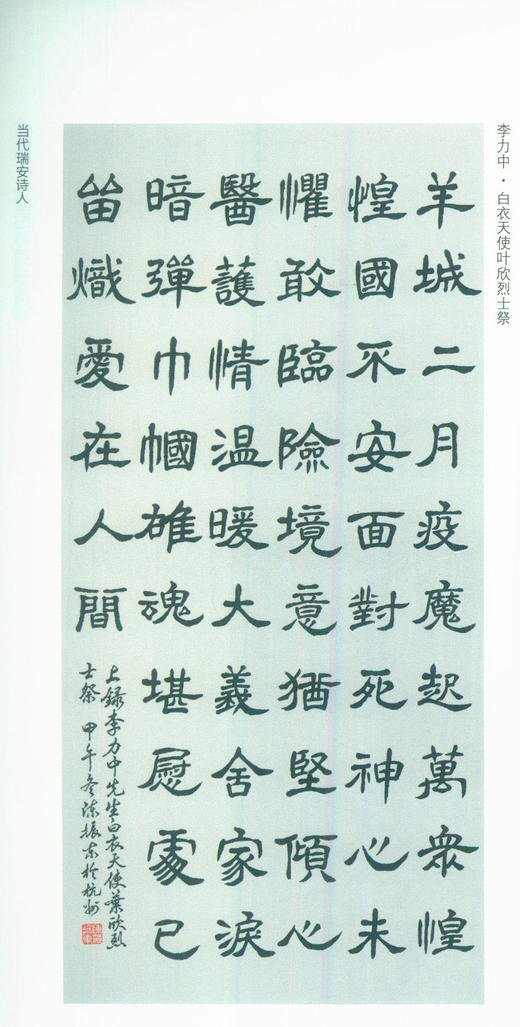 李力中·白衣天使叶欣烈士祭
羊城二月疫魔起萬衆惶
惶國不安面對死神心未
懼敢臨險境意猶堅傾心
醫護情温暖大義舍家淚
暗彈巾幗雄魂堪慰處已
留熾愛在人間
上録李力中先生白衣天使葉欣烈
士祭 甲午冬陈振东於杭州
当代瑞安诗人